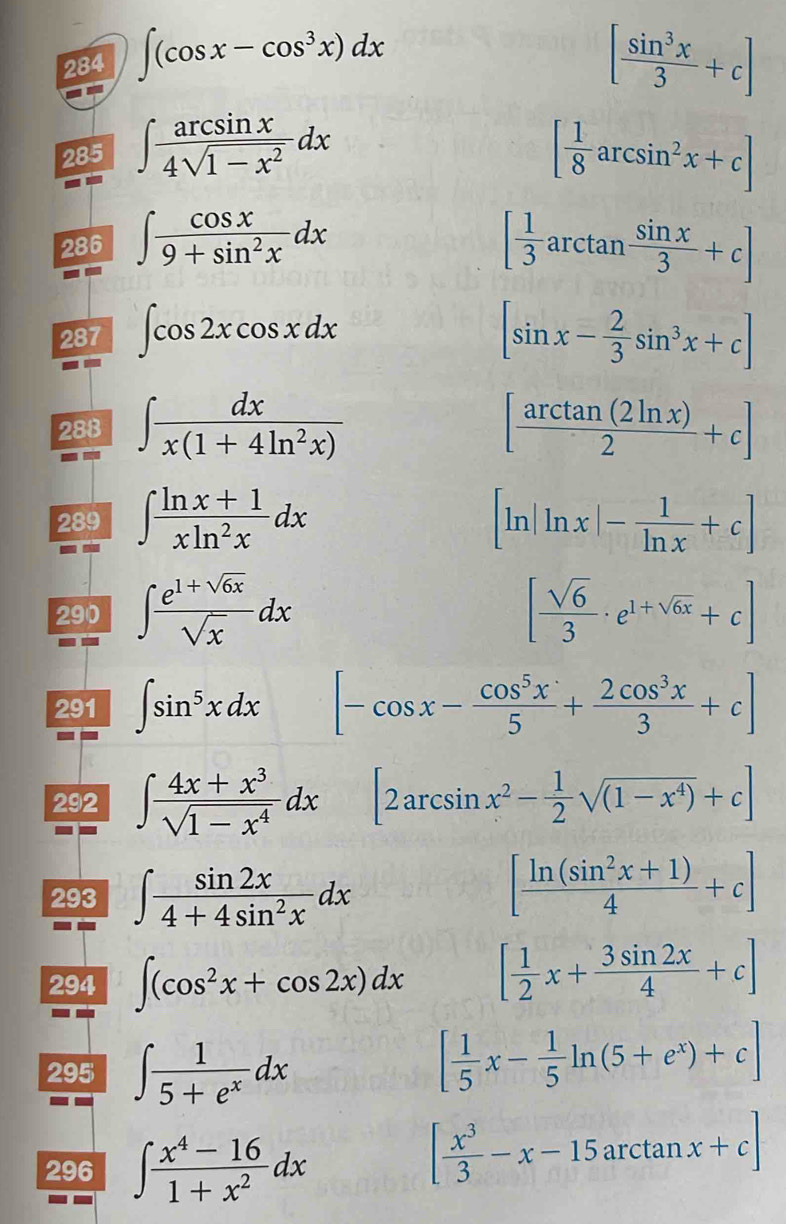 284 ∫(cos x − cos³x) dx [sin³x/3 + c]
285 ∫ arcsin x/(4√(1 − x²)) dx [1/8 arcsin²x + c]
286 ∫ cos x/(9 + sin²x) dx [1/3 arctan sin x/3 + c]
287 ∫cos 2x cos x dx [sin x − 2/3 sin³x + c]
288 ∫ dx/(x(1 + 4 ln²x)) [arctan (2 ln x)/2 + c]
289 ∫ (ln x + 1)/(x ln²x) dx [ln|ln x| − 1/ln x + c]
290 ∫ e^(1 + √(6x))/√x dx [√6/3 · e^(1 + √(6x)) + c]
291 ∫sin⁵x dx [−cos x − cos⁵x/5 + 2 cos³x/3 + c]
292 ∫ (4x + x³)/√(1 − x⁴) dx [2 arcsin x² − 1/2 √((1 − x⁴)) + c]
293 ∫ sin 2x/(4 + 4 sin²x) dx [ln(sin²x + 1)/4 + c]
294 ∫(cos²x + cos 2x) dx [1/2 x + 3 sin 2x/4 + c]
295 ∫ 1/(5 + eˣ) dx [1/5 x − 1/5 ln(5 + eˣ) + c]
296 ∫ (x⁴ − 16)/(1 + x²) dx [x³/3 − x − 15 arctan x + c]